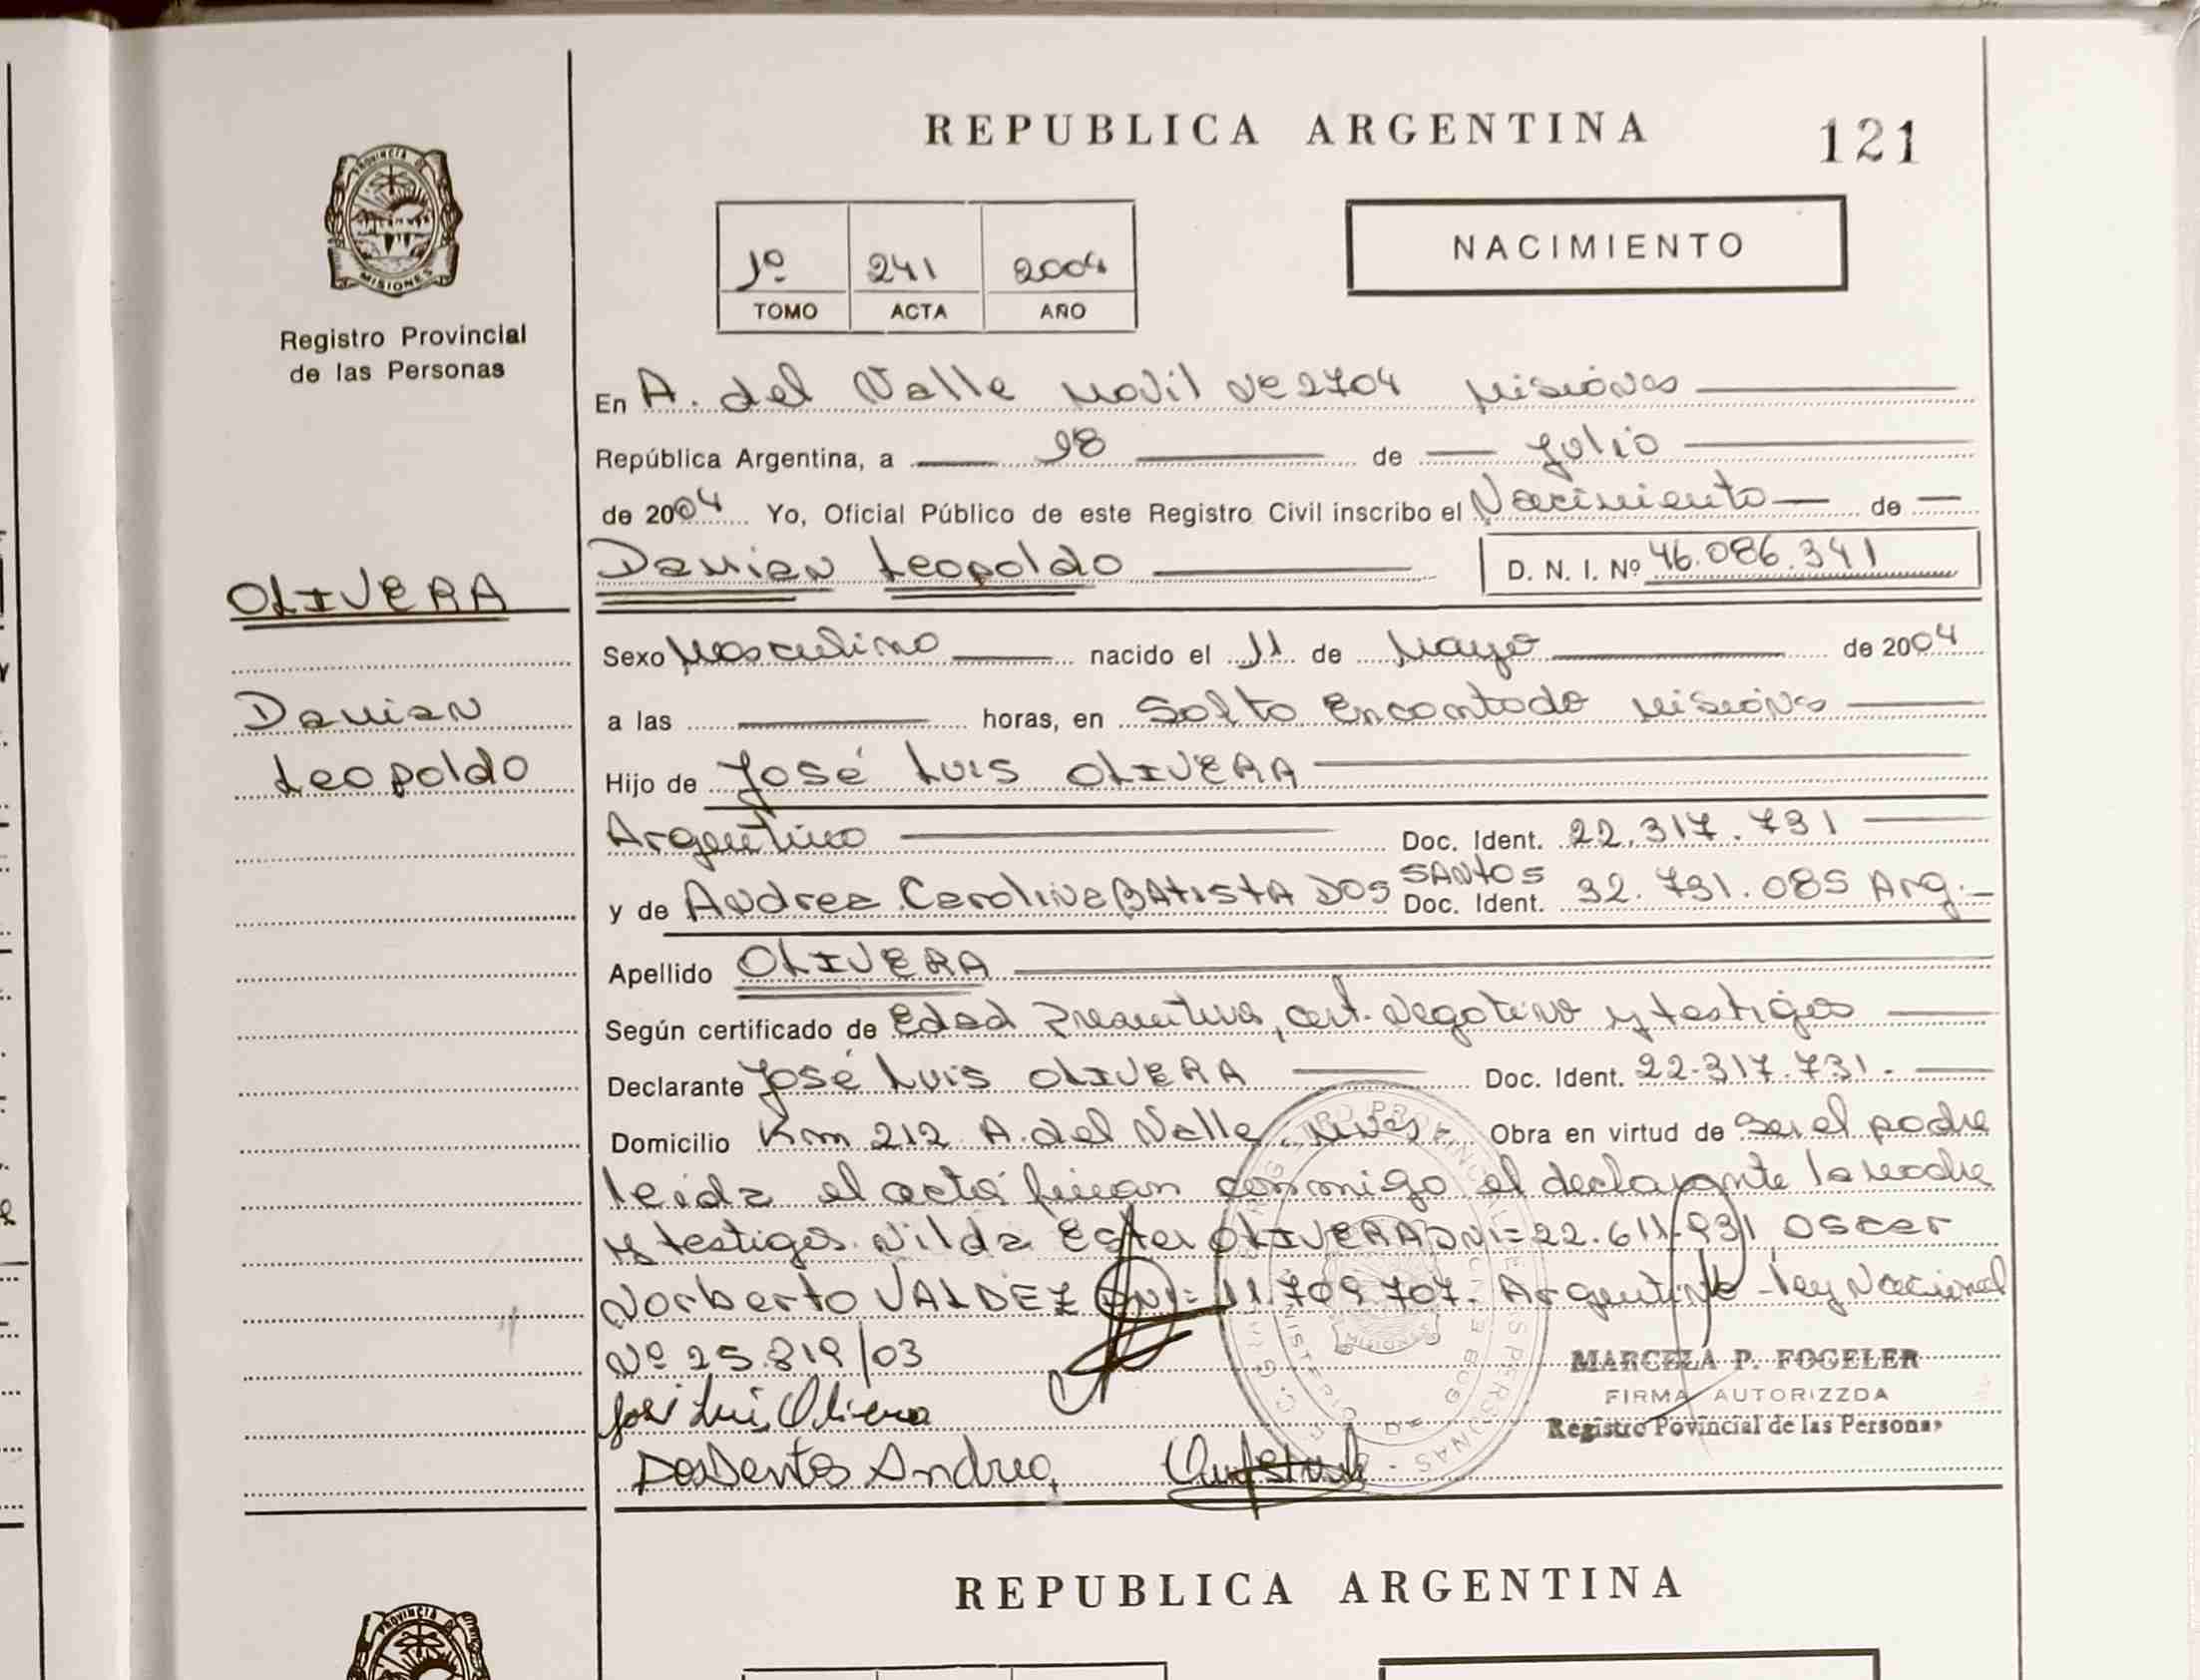 REPUBLICA ARGENTINA
121
PROVINCIA DE
MISIONES
Registro Provincial
de las Personas
1º 241 2004
TOMO ACTA AÑO
NACIMIENTO
En A. del Valle Movil Nº 2704 Misiones
República Argentina, a 28 de Julio
de 2004 Yo, Oficial Público de este Registro Civil inscribo el Nacimiento de
Damian Leopoldo
D. N. I. Nº 46.086.341
OLIVERA
Damian
Leopoldo
Sexo Masculino nacido el 11 de Mayo de 2004
a las horas, en Salto Encantado Misiones
Hijo de José Luis OLIVERA
Argentino Doc. Ident. 22.317.731
y de Andrea Carolina BATISTA DOS SANTOS Doc. Ident. 32.731.085 Arg.
Apellido OLIVERA
Según certificado de Edad Presuntiva, cert. Negativo y testigos
Declarante José Luis OLIVERA Doc. Ident. 22.317.731.
Domicilio Km 212 A. del Valle, Mnes. Obra en virtud de ser el padre
leida el acta firman conmigo el declarante la madre
y testigos Nilda Ester OLIVERA DNI=22.611.931 Oscar
Norberto VALDEZ DNI= 11.709.707. Argentino - Ley Nacional
Nº 25.819/03
José Luis Olivera
Dos Santos Andrea
MARCELA P. FOGELER
FIRMA AUTORIZZDA
Registro Povincial de las Personas
REPUBLICA ARGENTINA
PROVINCIA DE